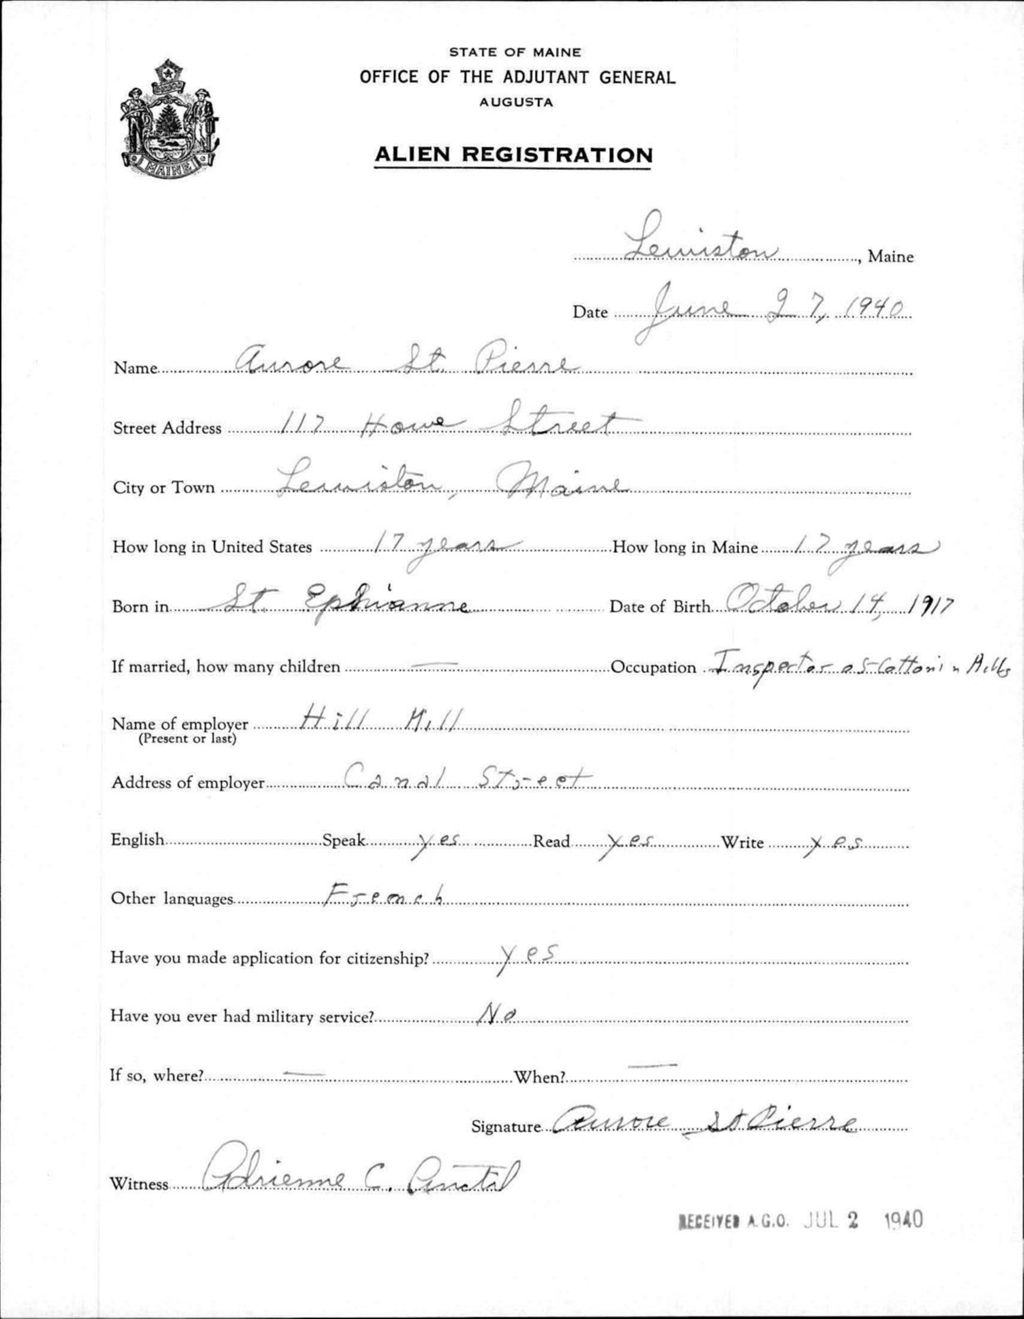 STATE OF MAINE
OFFICE OF THE ADJUTANT GENERAL
AUGUSTA
ALIEN REGISTRATION
MAINE
Lewiston, Maine
Date June 27, 1940
Name Aurore St. Pierre
Street Address 117 Howe Street
City or Town Lewiston, Maine
How long in United States 17 years How long in Maine 17 years
Born in St. Ephianne Date of Birth October 14, 1917
If married, how many children — Occupation Inspector of Cotton in Mills
Name of employer Hill Mill
(Present or last)
Address of employer Canal Street
English Speak yes Read yes Write yes
Other languages French
Have you made application for citizenship? yes
Have you ever had military service? No
If so, where? — When? —
Signature Aurore St Pierre
Witness Adrienne C. Anctil
RECEIVED A.G.O. JUL 2 1940